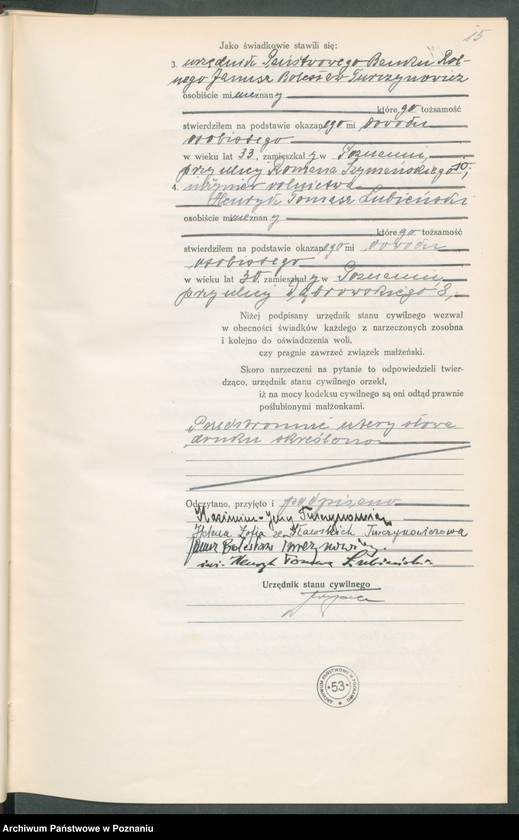 15
Jako świadkowie stawili się:
3. urzędnik Państwowego Banku Rol-
nego Janusz Bolesław Turczynowicz
osobiście mi nieznany
którego tożsamość
stwierdziłem na podstawie okazanego mi dowodu
osobistego
w wieku lat 33, zamieszkały w Poznaniu,
przy ulicy Romana Szymańskiego 10,
4. inżynier rolnictwa
Henryk Tomasz Łubieński
osobiście mi nieznany
którego tożsamość
stwierdziłem na podstawie okazanego mi dowodu
osobistego
w wieku lat 30, zamieszkały w Poznaniu,
przy ulicy Dąbrowskiego 8,
Niżej podpisany urzędnik stanu cywilnego wezwał
w obecności świadków każdego z narzeczonych zosobna
i kolejno do oświadczenia woli,
czy pragnie zawrzeć związek małżeński.
Skoro narzeczeni na pytanie to odpowiedzieli twier-
dząco, urzędnik stanu cywilnego orzekł,
iż na mocy kodeksu cywilnego są oni odtąd prawnie
poślubionymi małżonkami.
Przedstronnie cztery słowa
druku skreślono
Odczytano, przyjęto i podpisano
Kazimierz-Jerzy Turczynowicz
Helena Zofia ze Sławskich Turczynowiczowa
Janusz Bolesław Turczynowicz.
inż. Henryk Tomasz Łubieński.
Urzędnik stanu cywilnego
ARCHIWUM PAŃSTWOWE W POZNANIU
53
Archiwum Państwowe w Poznaniu